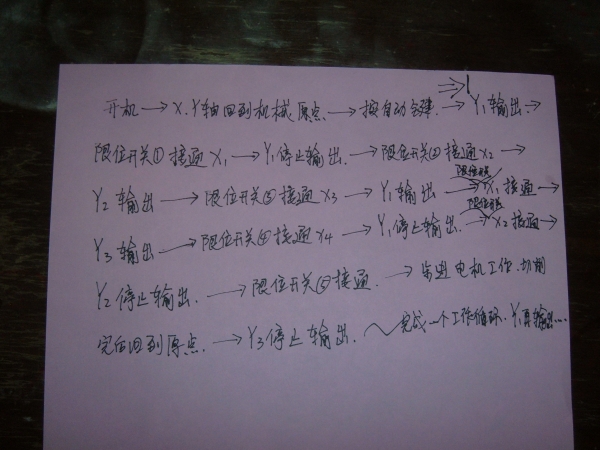 开机→X.Y轴回到机械原点→按自动键.→Y1输出→
限位开关①接通X1→Y1停止输出.→限位开关②接通X2→
Y2输出→限位开关③接通X3→Y1输出→X1接通→
Y3输出→限位开关④接通X4→Y1停止输出.→X2接通→
Y2停止输出.→限位开关⑤接通.→步进电机工作.切削
完后回到原点.→Y3停止输出.完成一个工作循环.Y1再输出……